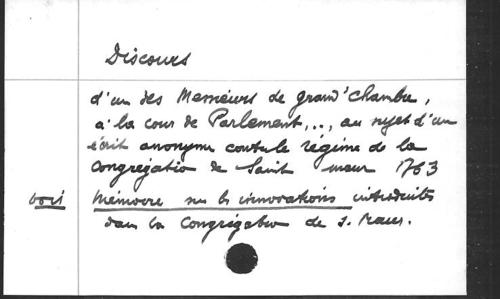 Discours
d'un des Messieurs de grand'chambre,
à la cour de Parlement,.., au sujet d'un
écrit anonyme contre le régime de la
Congrégation de Saint maur 1763
voir Mémoire sur les innovations introduites
dans la Congrégation de S. Maur.